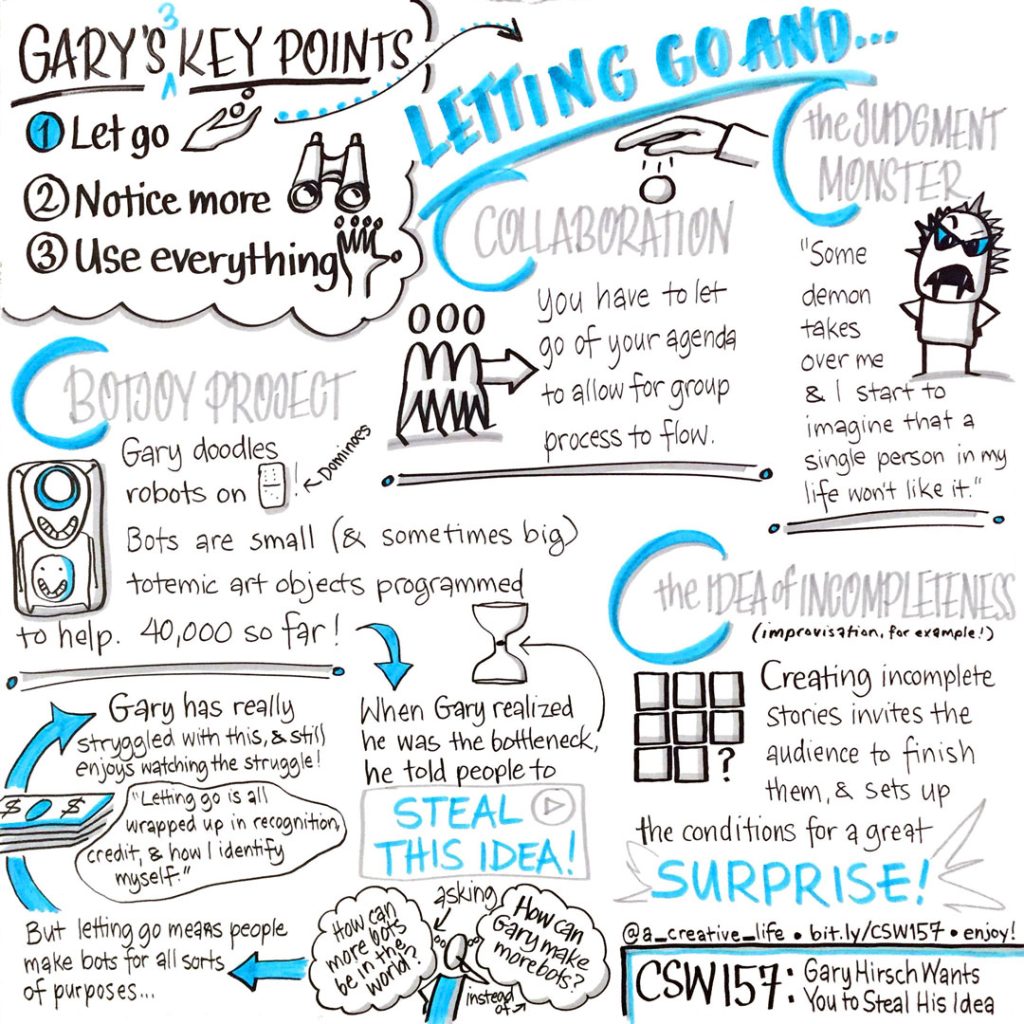 GARY'S 3 KEY POINTS
1 Let go
2 Notice more
3 Use everything
LETTING GO AND...
COLLABORATION
you have to let
go of your agenda
to allow for group
process to flow.
the JUDGMENT
MONSTER
"Some
demon
takes
over me
& I start to
imagine that a
single person in my
life won't like it."
BOTJOY PROJECT
Gary doodles
robots on ! ← Dominoes
Bots are small (& sometimes big)
totemic art objects programmed
to help. 40,000 so far!
When Gary realized
he was the bottleneck,
he told people to
STEAL
THIS IDEA!
asking
How can
more bots
be in the
world?
instead of
How can
Gary make
more bots?
But letting go means people
make bots for all sorts
of purposes...
$ $
"Letting go is all
wrapped up in recognition,
credit, & how I identify
myself."
Gary has really
struggled with this, & still
enjoys watching the struggle!
the IDEA of INCOMPLETENESS
(improvisation, for example!)
?
Creating incomplete
stories invites the
audience to finish
them, & sets up
the conditions for a great
SURPRISE!
@a_creative_life • bit.ly/CSW157 • enjoy!
CSW157: Gary Hirsch Wants
You to Steal His Idea